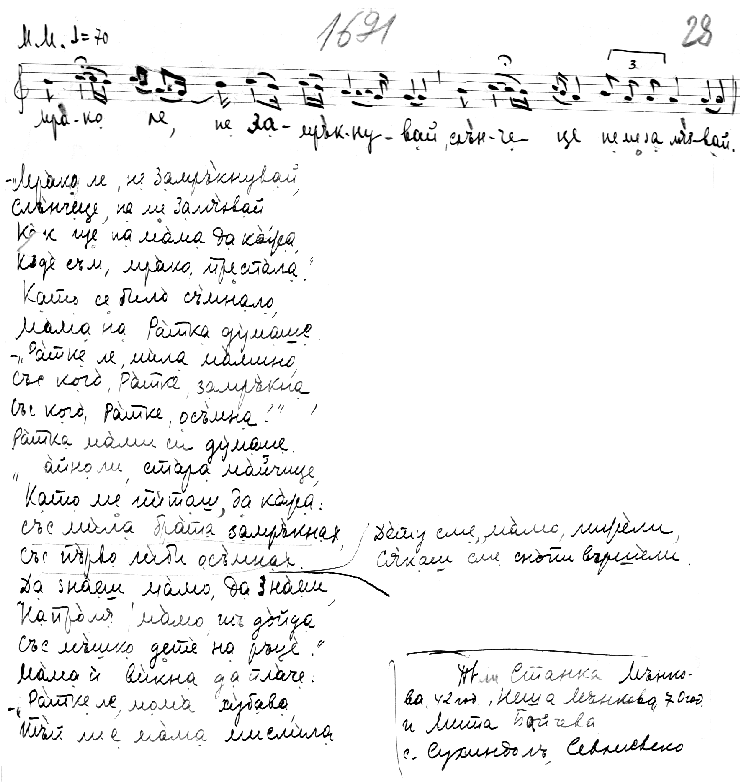 М.М. ♩=70
1691
28
3.
Мра-ко ле, не За-мрък-ну-вай, слън-че- це не ми за мъ-вай.
-„Мрако ле, не Замръкнувай,
Слънчеце, не ми
Как ще на мама да кажа,
Къде съм, мрако,
Като се било съмнало,
мама на Ратка думаше
-„Ратке ле, мила мамино,
със кого, Ратке, замръкна
със кого, Ратке, осъмна?“
Ратка мами си думаше.
„ стара майчице,
Като ме питаш, да кажа:
със мила брата замръкнах,
със първо либи осъмнах.
Дету сме, мамо,
Сякаш сме снопи вършели.
Да знаеш мамо, да знаеш,
мамо, шъ дойда
със мъшко дете на ръце.“
мама й викна да плаче:
-„Ратке ле, мома хубава,
Тъй ли е мама мислила
Станка Мънко-
ва, 42 год., Неша Мънкова, 70 год
и Мита
с. Сухиндолъ, Севлиевско